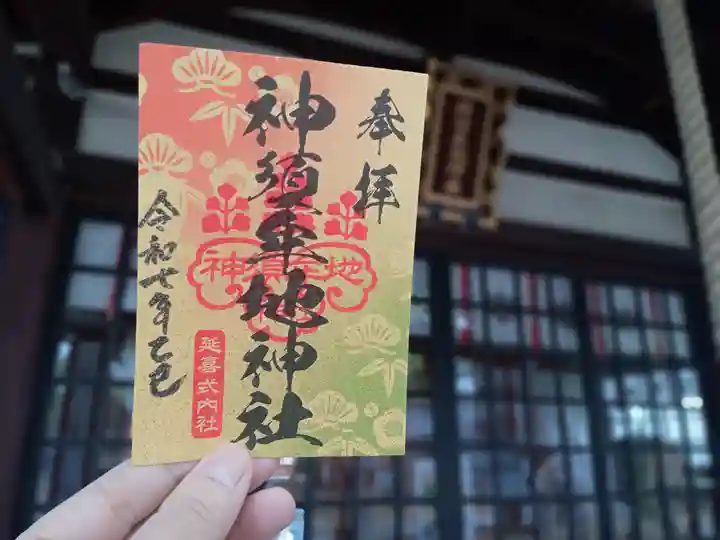 奉拝
神須牟地神社
神須牟地
令和七年乙巳
延喜式内社